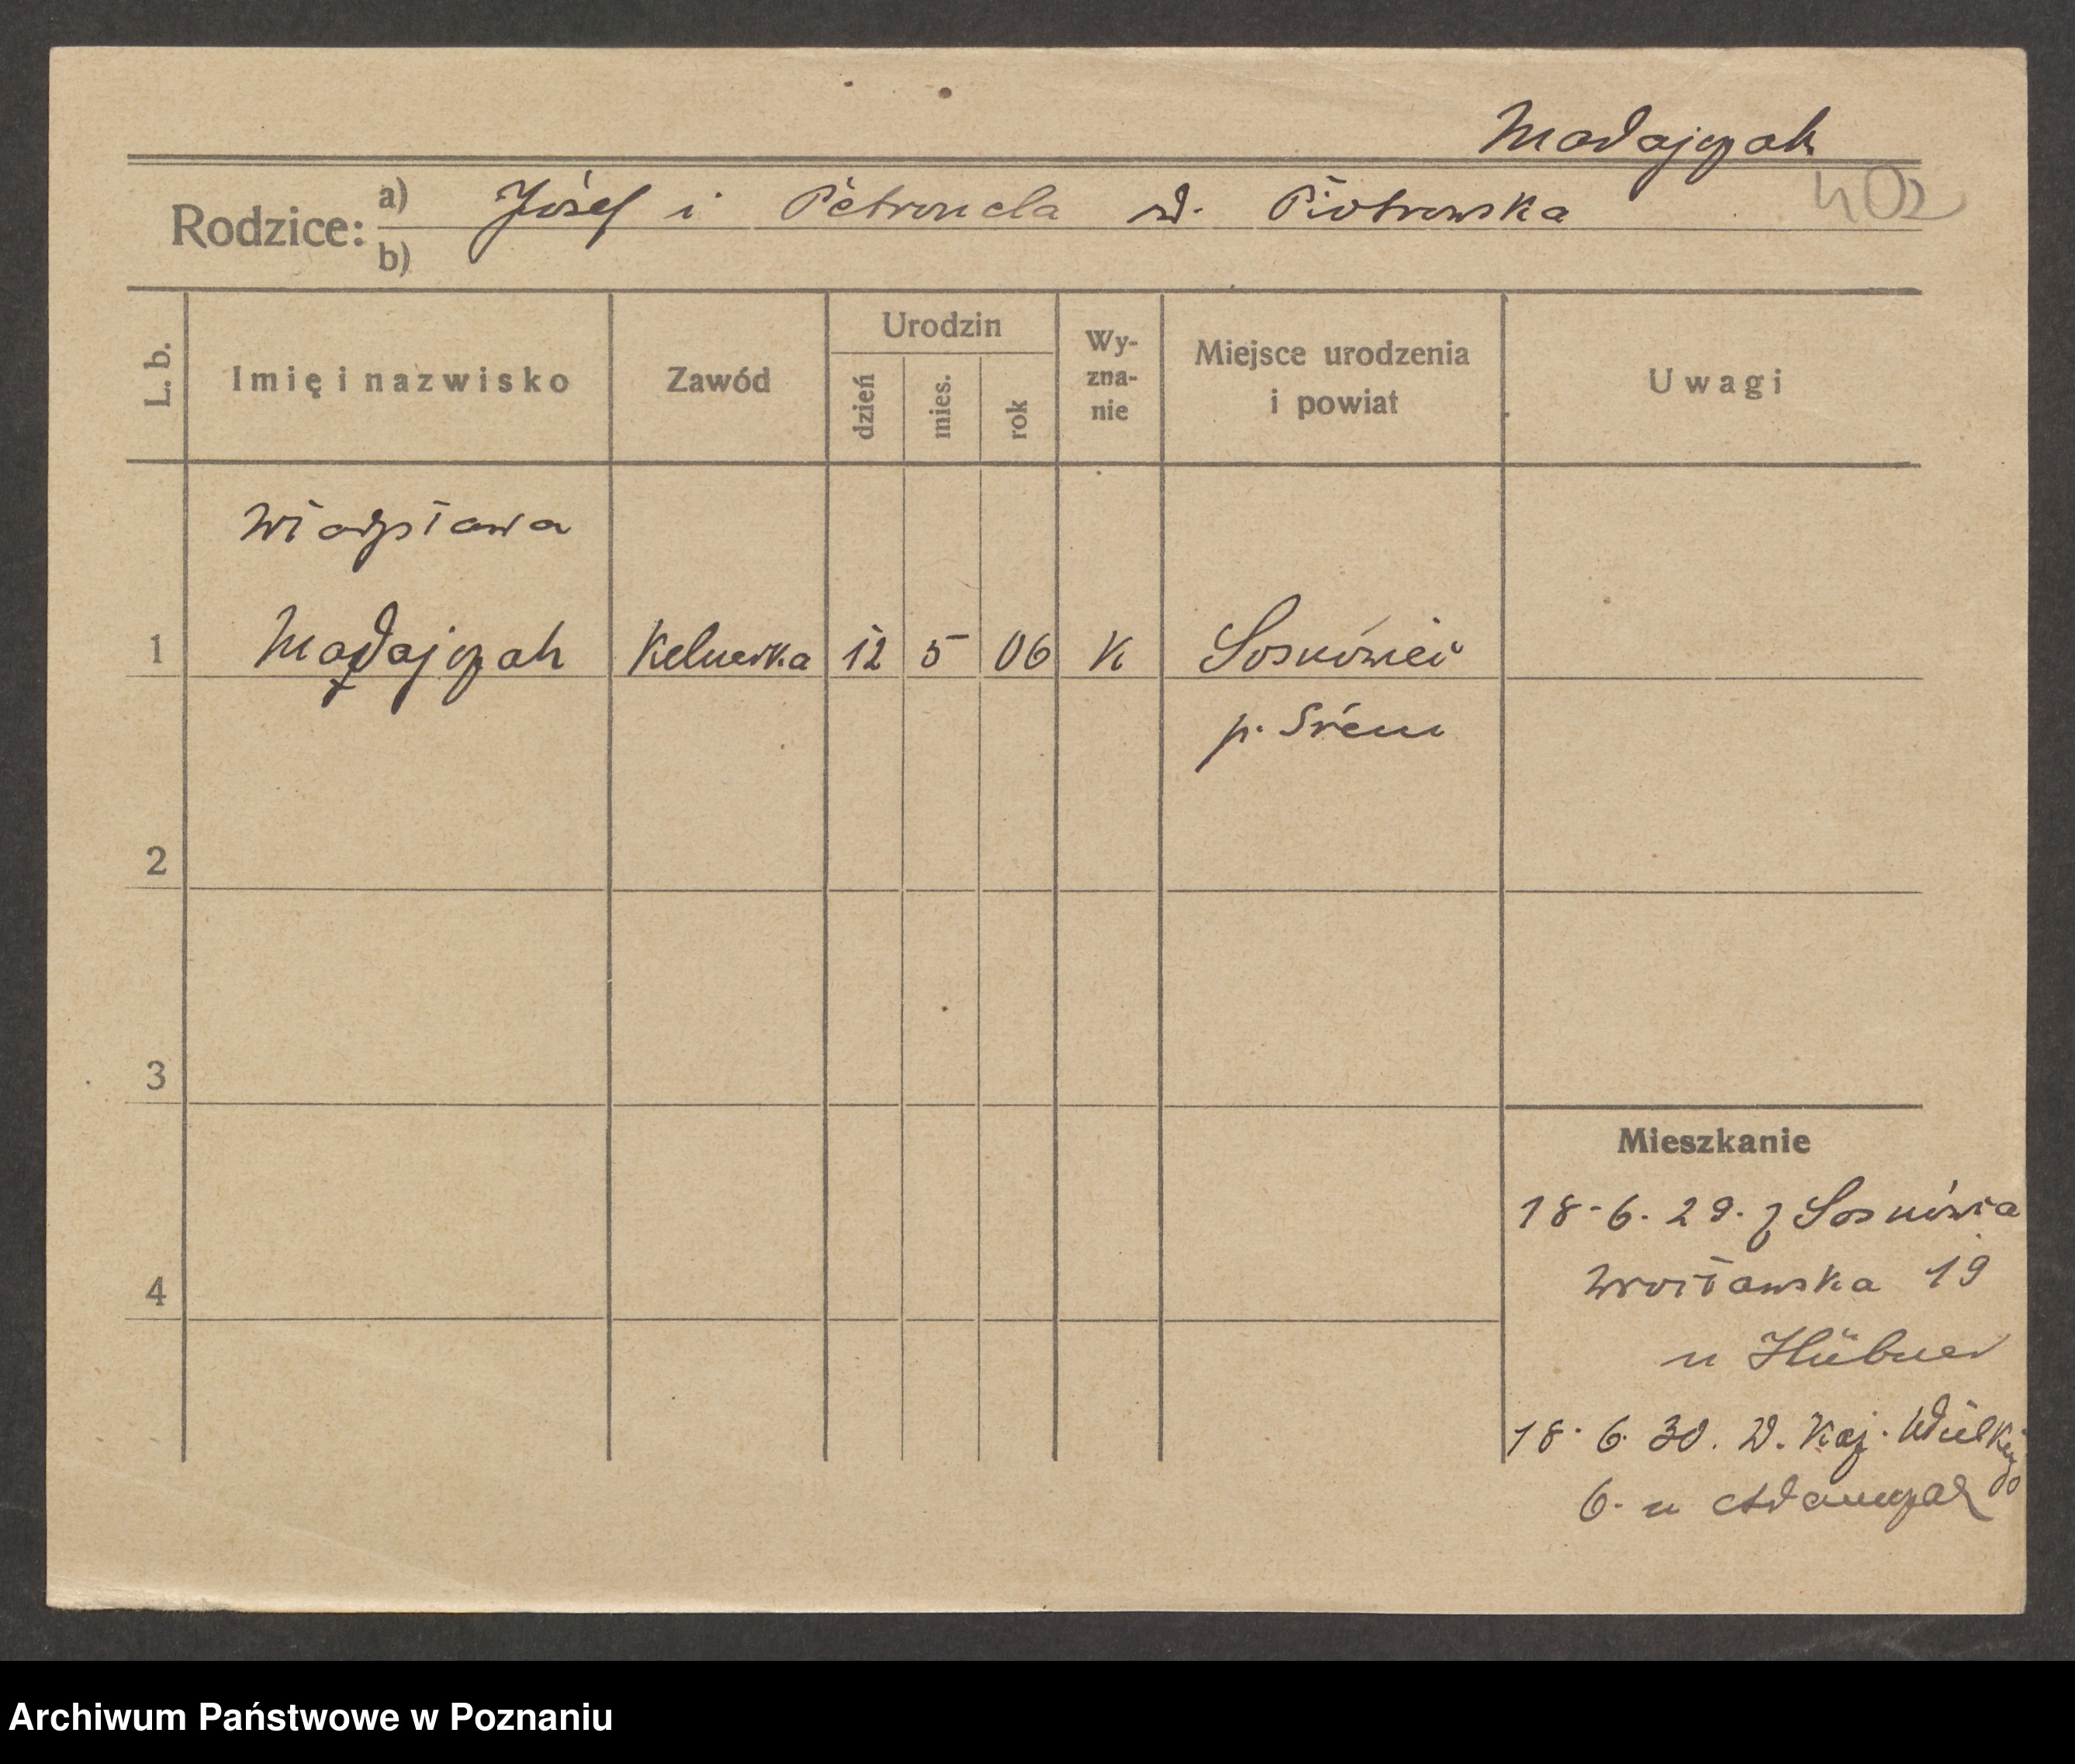 Madajczak
Rodzice: a) Józef i Petronela rd. Piotrowska
402
b)
L. b.
Imię i nazwisko
Zawód
Urodzin
dzień
mies.
rok
Wy-
zna-
nie
Miejsce urodzenia
i powiat
Uwagi
Władysława
1 Madajczak Kelnerka 12 5 06 K Sosnówiec
p. Śrem
2
3
4
Mieszkanie
18.6.29. z Sosnówca
Wrocławska 19
u Hübner
18.6.30. W. Kaź. Wielkiego
6. u Adamczak
Archiwum Państwowe w Poznaniu